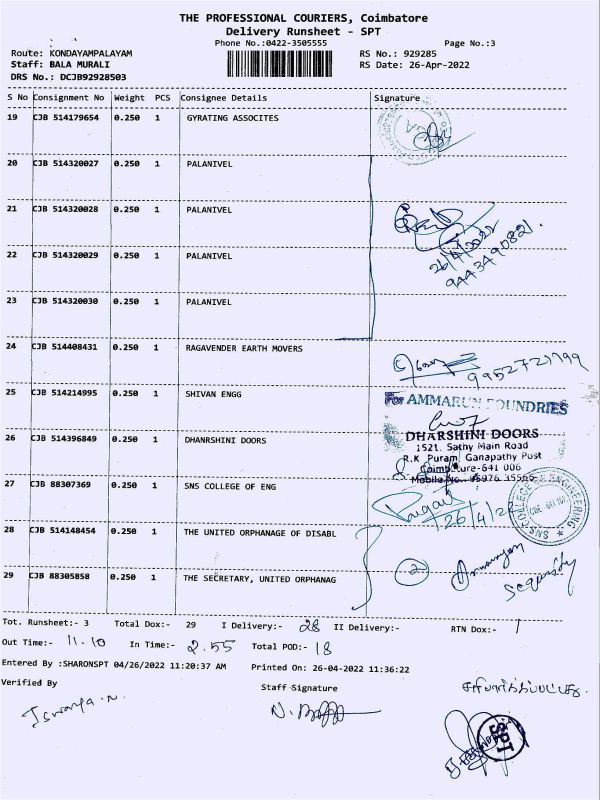 THE PROFESSIONAL COURIERS, Coimbatore
Delivery Runsheet - SPT
Phone No.:0422-3505555 Page No.:3
Route: KONDAYAMPALAYAM RS No.: 929285
Staff: BALA MURALI RS Date: 26-Apr-2022
DRS No.: DCJB92928503
S No Consignment No Weight PCS Consignee Details Signature
19 CJB 514179654 0.250 1 GYRATING ASSOCITES
20 CJB 514320027 0.250 1 PALANIVEL
21 CJB 514320028 0.250 1 PALANIVEL
26/4/2022
9443490821.
22 CJB 514320029 0.250 1 PALANIVEL
23 CJB 514320030 0.250 1 PALANIVEL
24 CJB 514408431 0.250 1 RAGAVENDER EARTH MOVERS
9952721999
25 CJB 514214995 0.250 1 SHIVAN ENGG
For AMMARUN FOUNDRIES
26 CJB 514396849 0.250 1 DHANRSHINI DOORS
DHARSHINI DOORS
1521, Sathy Main Road
R.K. Puram, Ganapathy Post
Coimbatore-641 006
Mobile No.
27 CJB 88307369 0.250 1 SNS COLLEGE OF ENG
26/4/22
SNS COLLEGE OF ENGINEERING
28 CJB 514148454 0.250 1 THE UNITED ORPHANAGE OF DISABL
2
Security
29 CJB 88305858 0.250 1 THE SECRETARY, UNITED ORPHANAG
Tot. Runsheet:- 3 Total Dox:- 29 I Delivery:- 28 II Delivery:- RTN Dox:- 1
Out Time:- 11.10 In Time:- 2.55 Total POD:- 18
Entered By :SHARONSPT 04/26/2022 11:20:37 AM Printed On: 26-04-2022 11:36:22
Verified By Staff Signature
சரிபார்க்கப்பட்டது.
Iswarya.N.
SPT